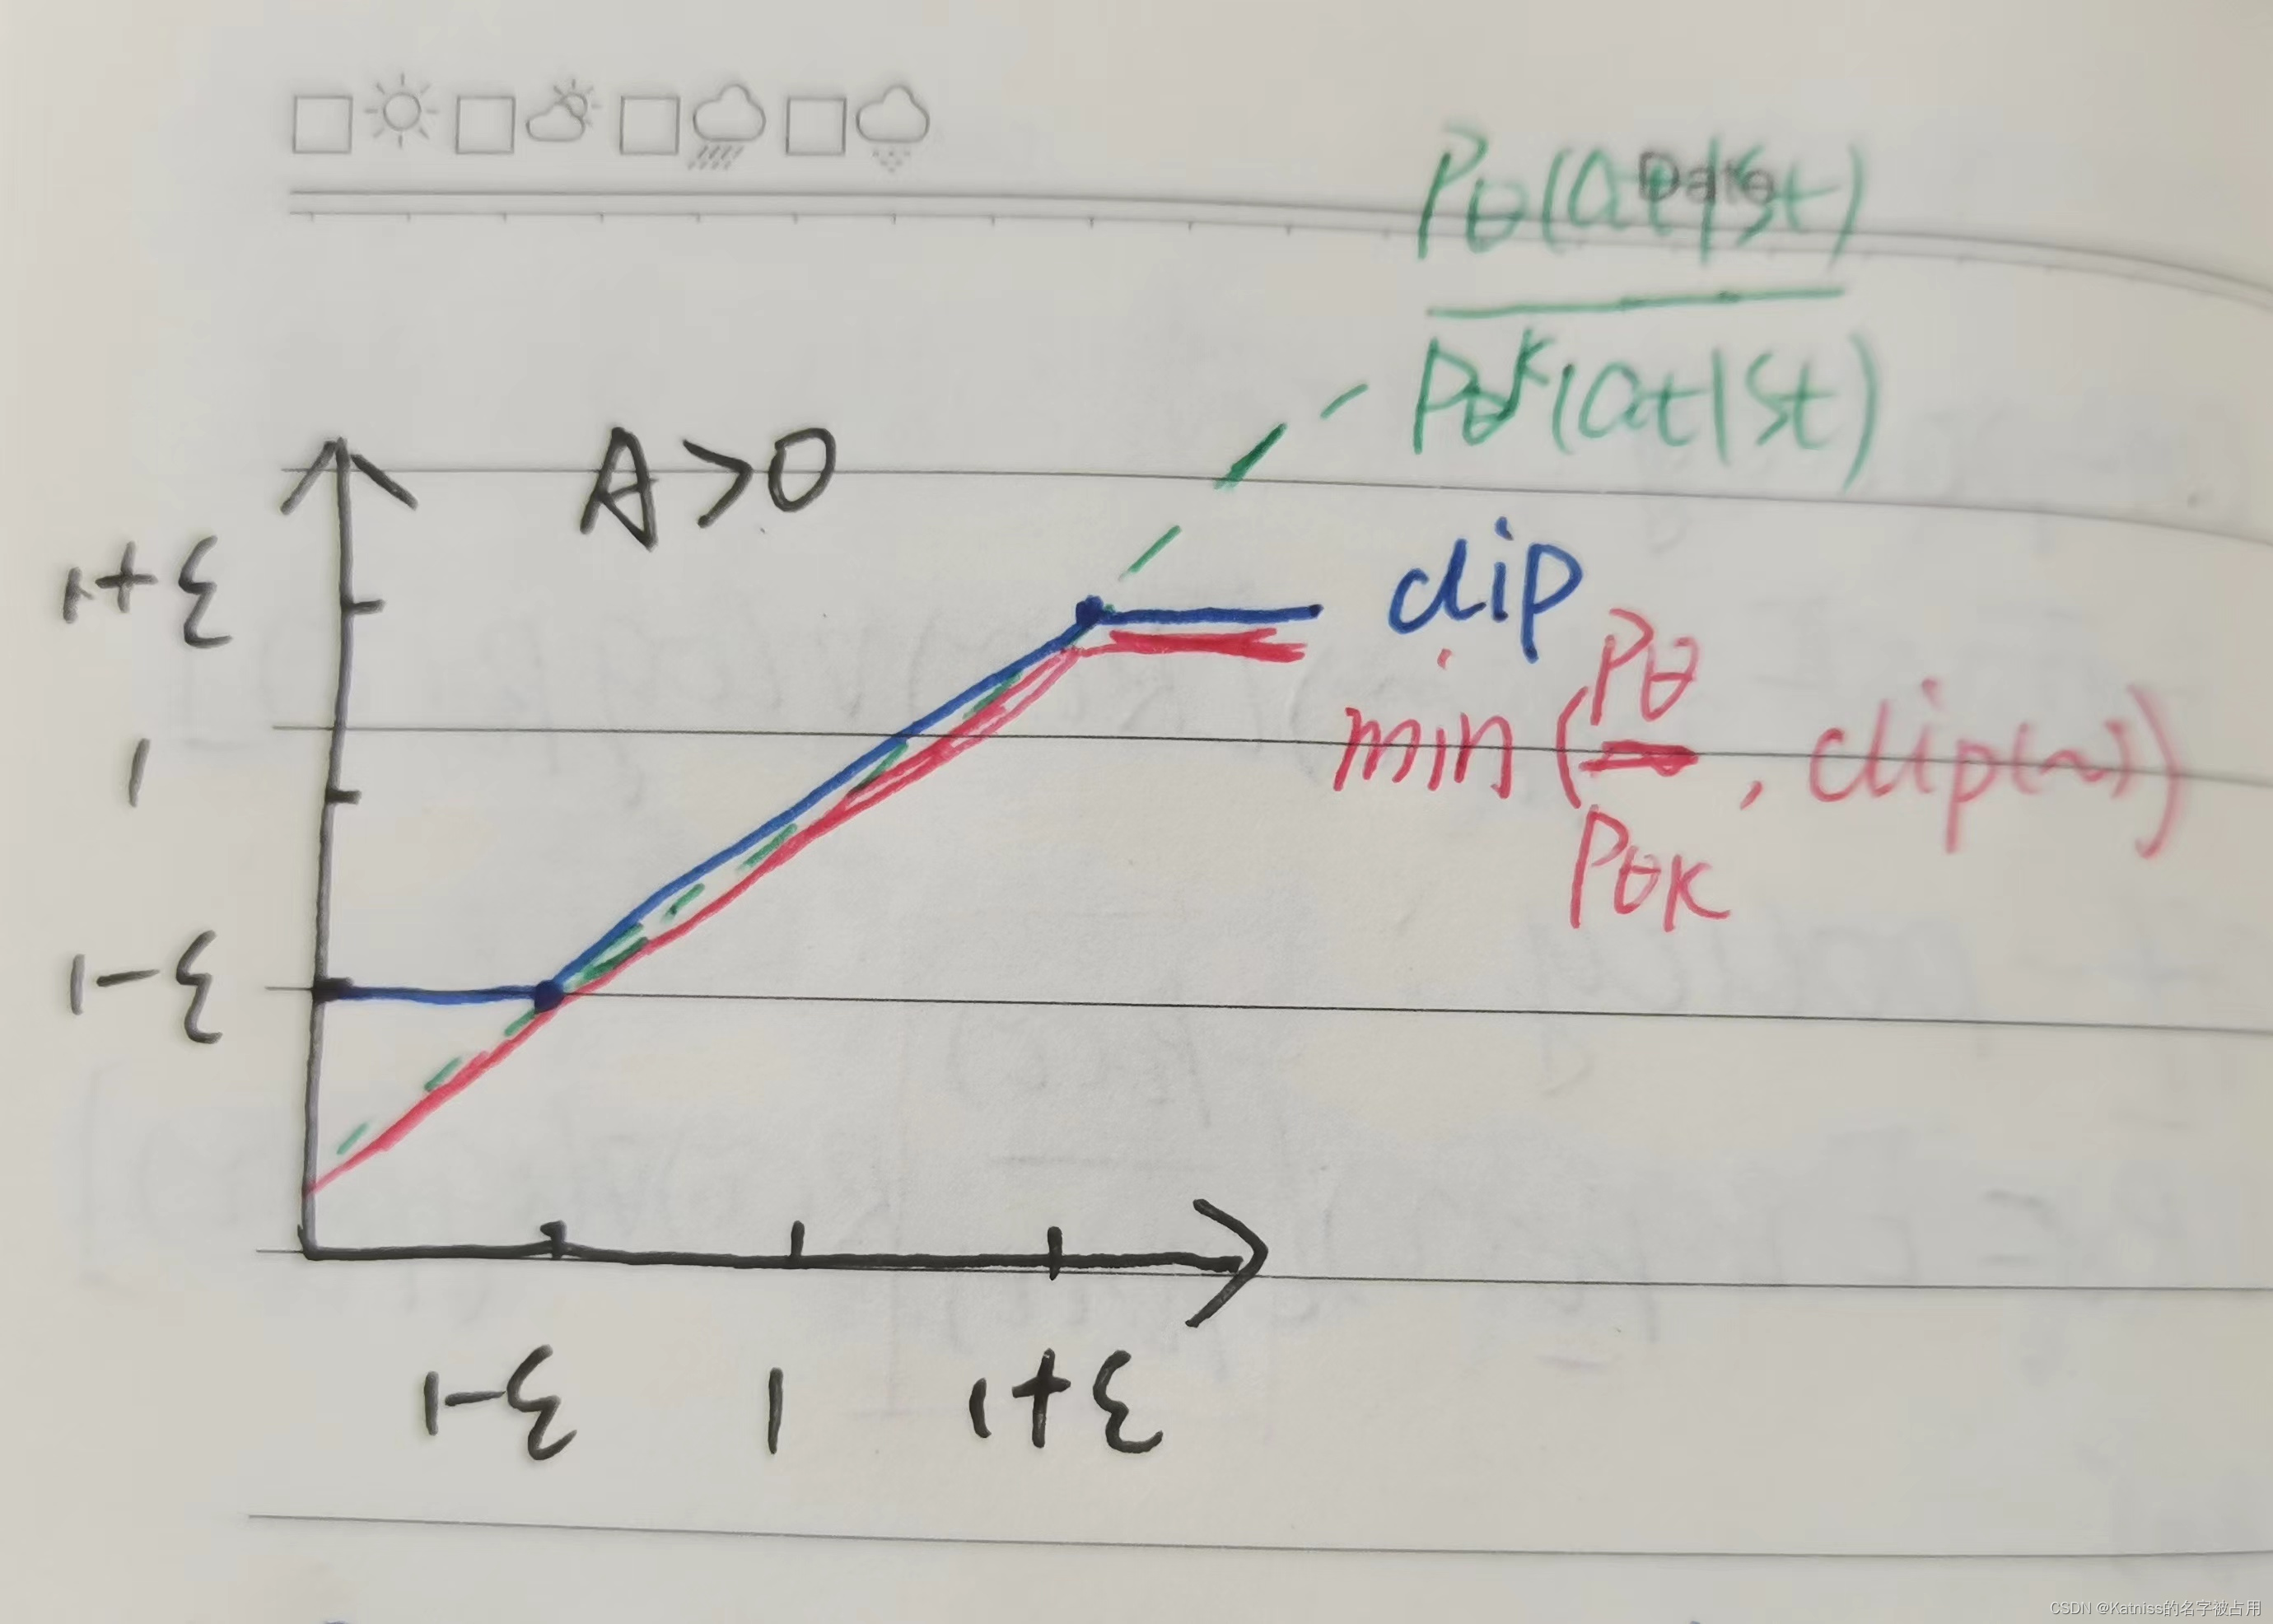 Date
Pθ(at|st)
Pθᴷ(at|st)
A>0
1+ε
clip
min(Pθ/PθK, clip(~))
1
1-ε
1-ε 1 1+ε
CSDN @Katniss的名字被占用